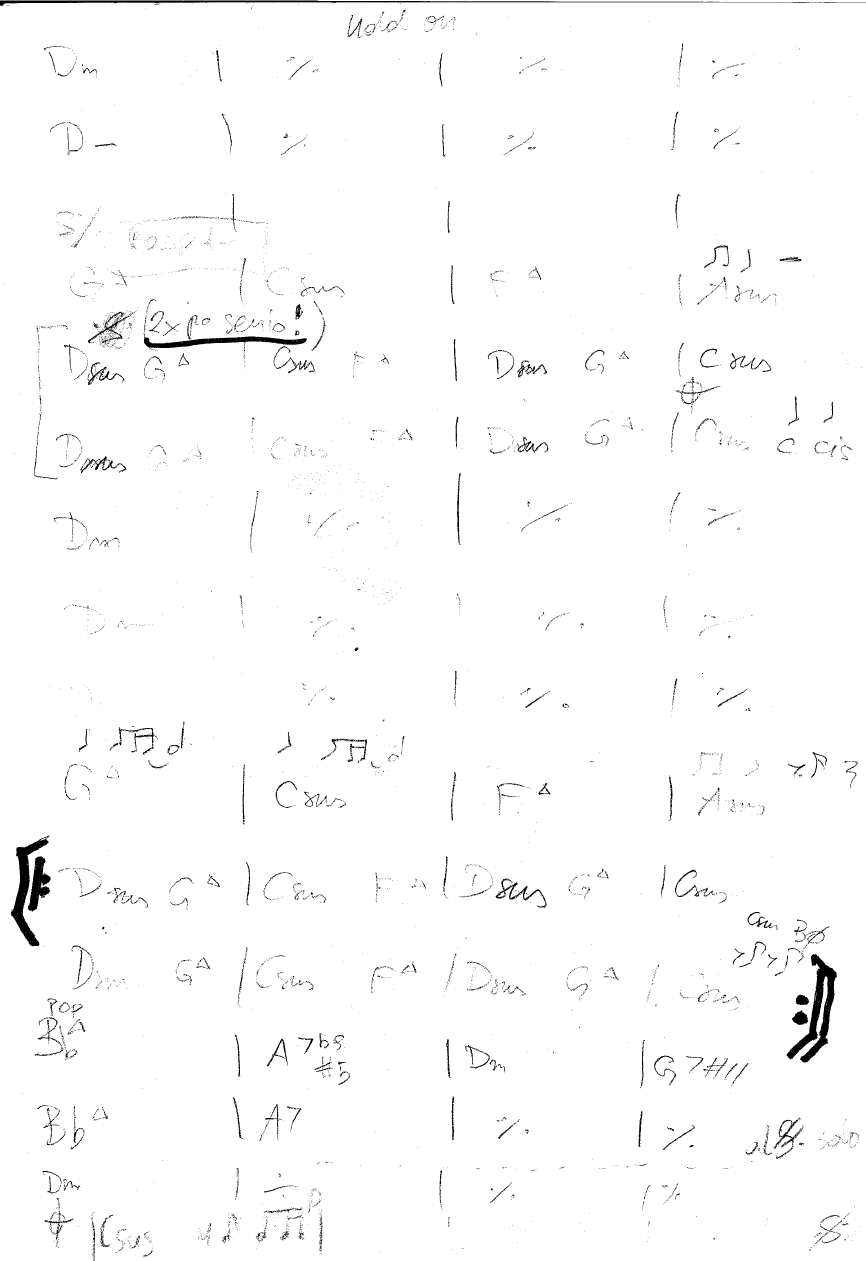 Hold on
Dm | ٪ | ٪ | ٪
D– | ٪ | ٪ | ٪
| | |
G | Csus | F△ | Asus
(2x po senio!)
Dsus G△ | Csus F△ | Dsus G△ | Csus
Dsus G△ | Csus F△ | Dsus G△ | Csus C cis
Dm | ٪ | ٪ | ٪
Dm | ٪ | ٪ | ٪
٪ | ٪ | ٪
G△ | Csus | F△ | Asus
Dsus G△ | Csus F△ | Dsus G△ | Csus
Csus Bø
Dsus G△ | Csus F△ | Dsus G△ | Csus
POP
Bb△ | A7b9#5 | Dm | G7#11
Bb△ | A7 | ٪ | ٪ solo
Dm | ٪ | ٪ | ٪
|Csus